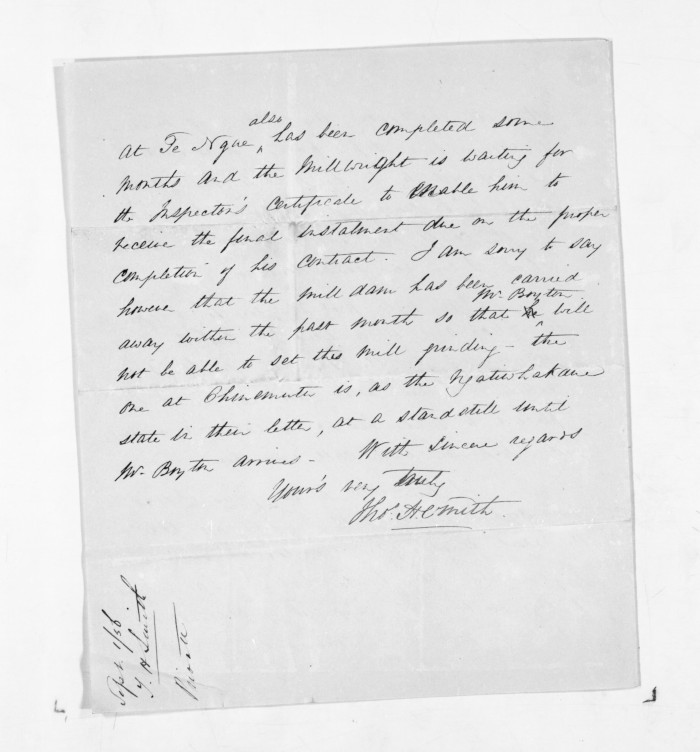 also
At Te Ngae ^ has been completed some
months and the Millwright is waiting for
the Inspector's Certificate to enable him to
receive the final instalment due on the proper
completion of his contract. I am sorry to say
however that the mill dam has been carried
Mr. Boyton
away within the past month so that he will
not be able to set this mill grinding - the
one at Ohinemutu is, as the Ngatiwhakaue
state in their letter, at a standstill until
Mr. Boyton arrives - With sincere regards
Your's very truly
Thos. H Smith.
Sept. 1/56
T H Smith
Private